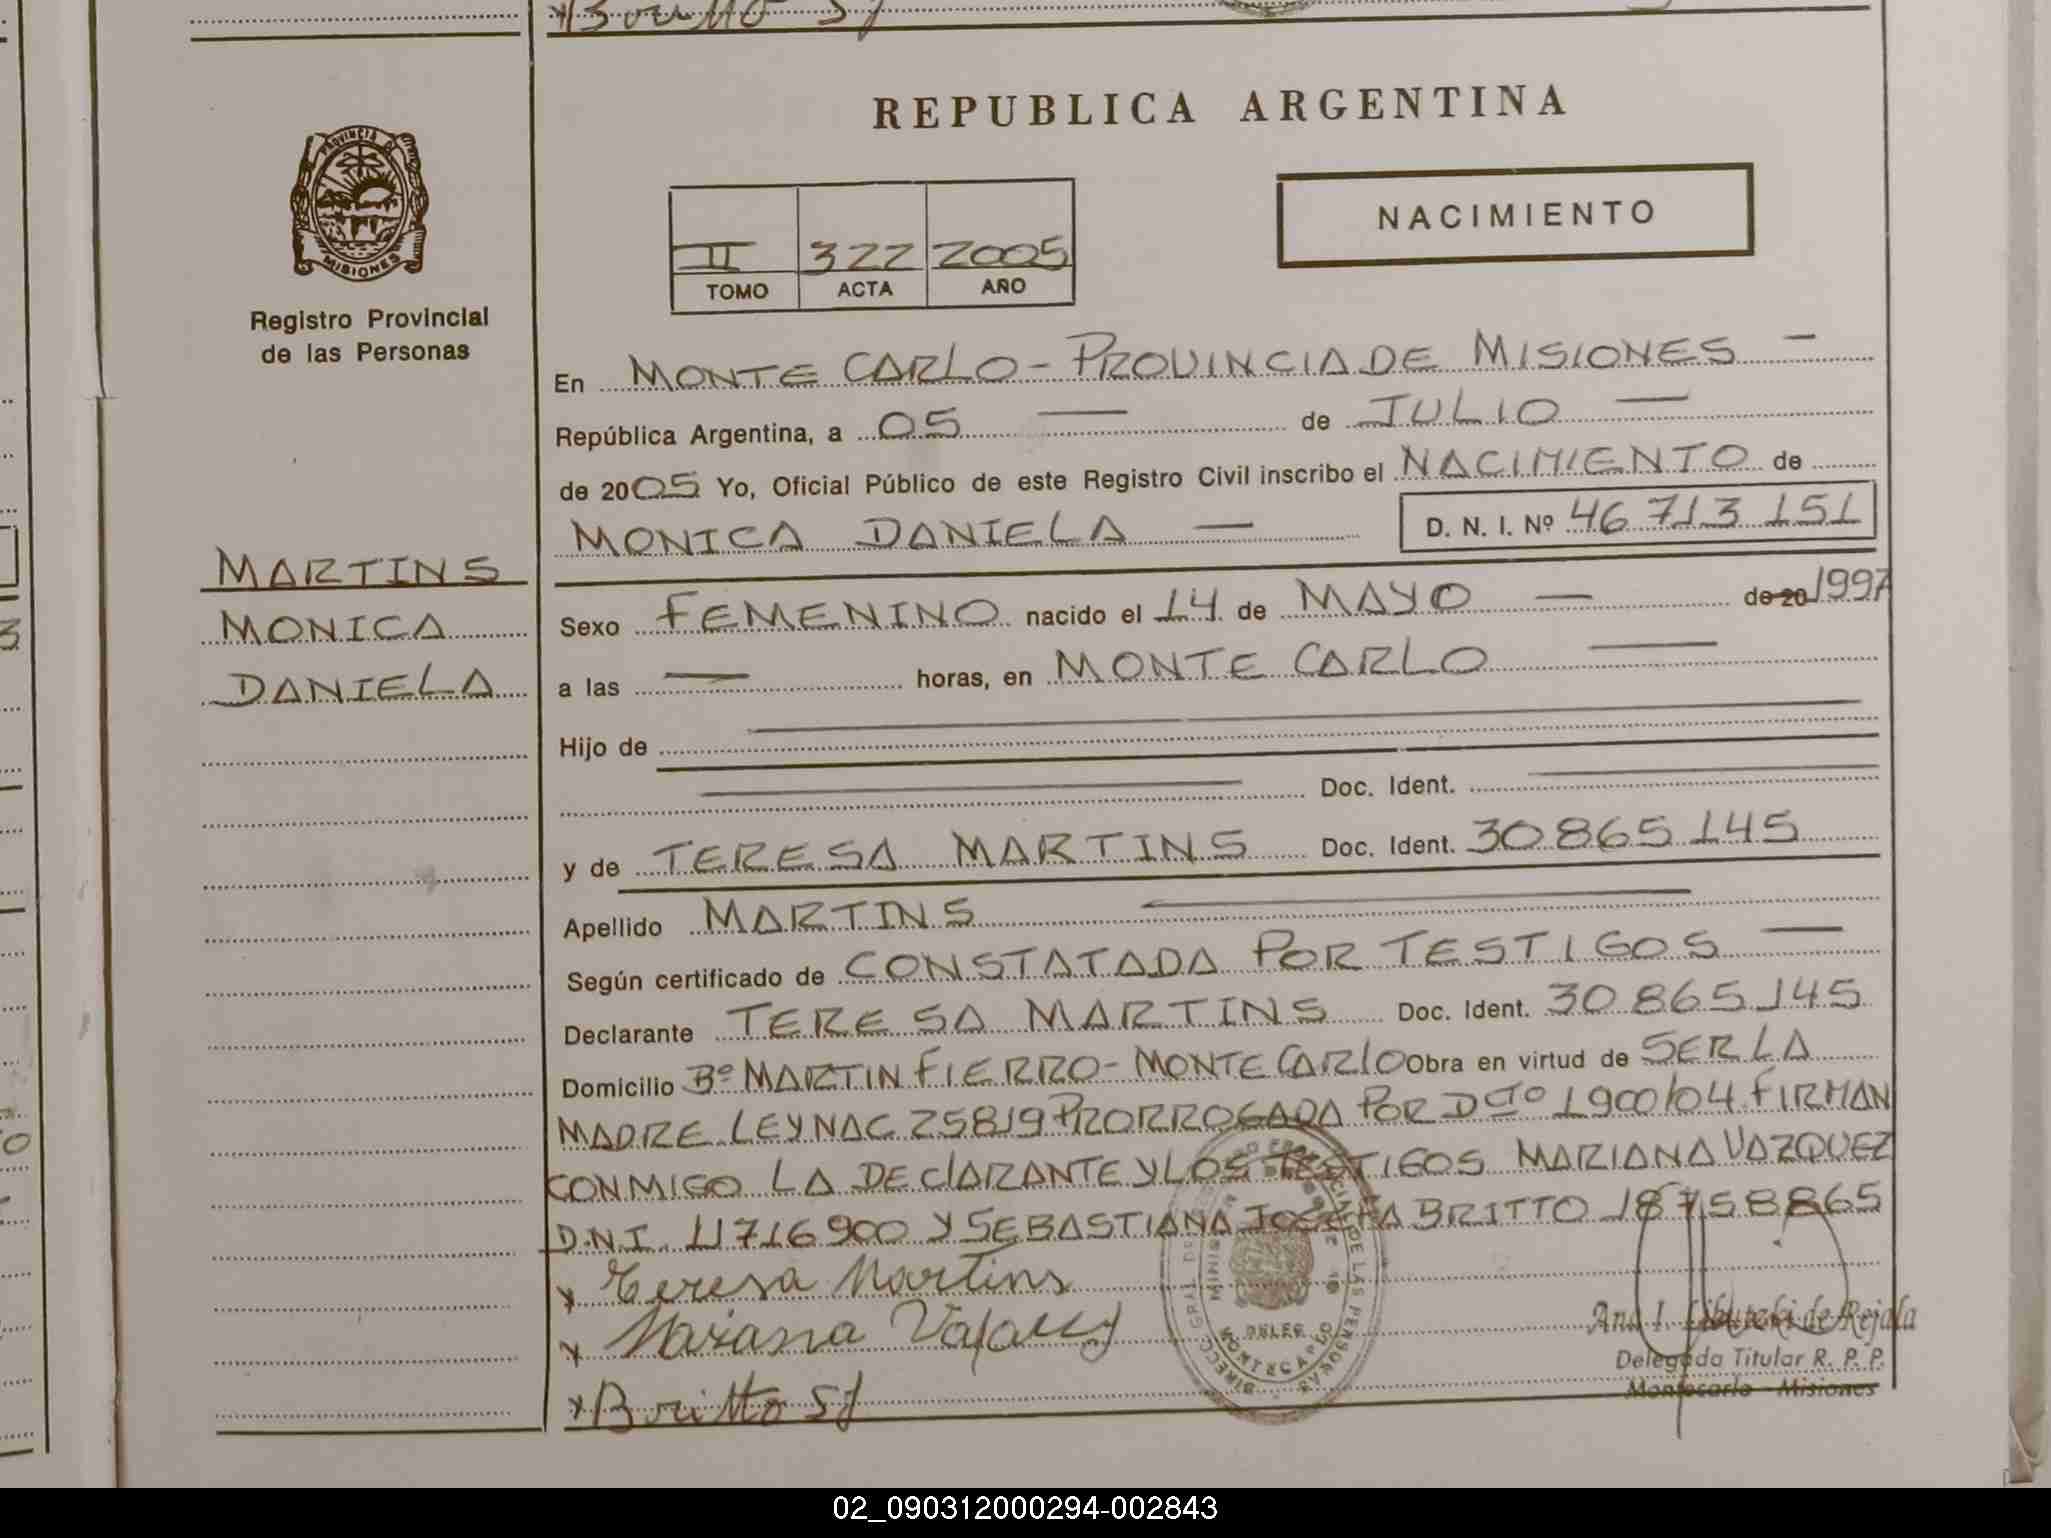 Britto SJ
REPUBLICA ARGENTINA
PROVINCIA DE
MISIONES
Registro Provincial
de las Personas
II 322 2005
TOMO ACTA AÑO
NACIMIENTO
En MONTE CARLO - PROVINCIA DE MISIONES —
República Argentina, a 05 — de JULIO —
de 2005 Yo, Oficial Público de este Registro Civil inscribo el NACIMIENTO de
MONICA DANIELA — D. N. I. Nº 46 713 151
MARTINS
MONICA
DANIELA
Sexo FEMENINO nacido el 14 de MAYO — de 20 1997
a las — horas, en MONTE CARLO —
Hijo de
Doc. Ident.
y de TERESA MARTINS Doc. Ident. 30 865 145
Apellido MARTINS
Según certificado de CONSTATADA POR TESTIGOS —
Declarante TERESA MARTINS Doc. Ident. 30 865 145
Domicilio Bº MARTIN FIERRO - MONTE CARLO Obra en virtud de SER LA
MADRE LEY NAC 25819 PRORROGADA POR DCTO 1900/04 FIRMAN
CONMIGO LA DECLARANTE Y LOS TESTIGOS MARIANA VAZQUEZ
D.N.I. 11716900 Y SEBASTIANA JOSEFA BRITTO 18758865
x Teresa Martins
x Mariana
x Britto SJ
MONTECARLO
Ana I. de Rejala
Delegada Titular R. P. P.
Montecarlo - Misiones
02_090312000294-002843